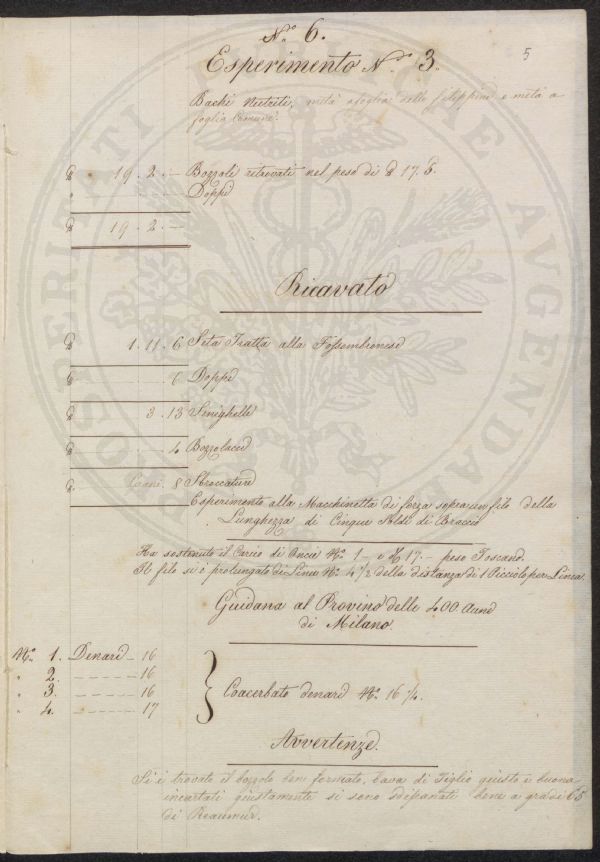 N.o 6.
5
Esperimento N.ro 3.
Bachi Nutriti, metà a foglia delle filippine e metà a
foglia Comune.
19 . 2 . — Bozzoli ritrovati nel peso di 17. 6.
Doppi
19 . 2 . —
Ricavato
1 . 11 . 6 Seta Tratta alla Fossombronese
6 Doppi
3 . 13 Sinighelle
4 Bozzolacci
8 Sbroccature
Esperimento alla Macchinetta di forza sopra un filo della
Lunghezza di Cinque Soldi di Braccio
Ha sostenuto il Carico di Oncie N.o 1 - e 17. - peso Toscano.
Il filo si è prolungato di Linee N.o 4 1/2 della distanza di 1 Picciolo per Linea.
Guidana al Provino delle 400 Aune
di Milano.
N.o 1. Denari - 16
" 2. - - - - - 16
" 3. - - - - - 16
" 4. - - - - - 17
Coacerbato denari N.o 16 1/4.
Avvertenze.
Si è trovato il bozzolo ben formato, bava di Tiglio giusto e buona
incartati giustamente si sono sdipanati bene a gradi 65
di Reaumur.
PROSPERITATI PUBLICAE AUGENDAE